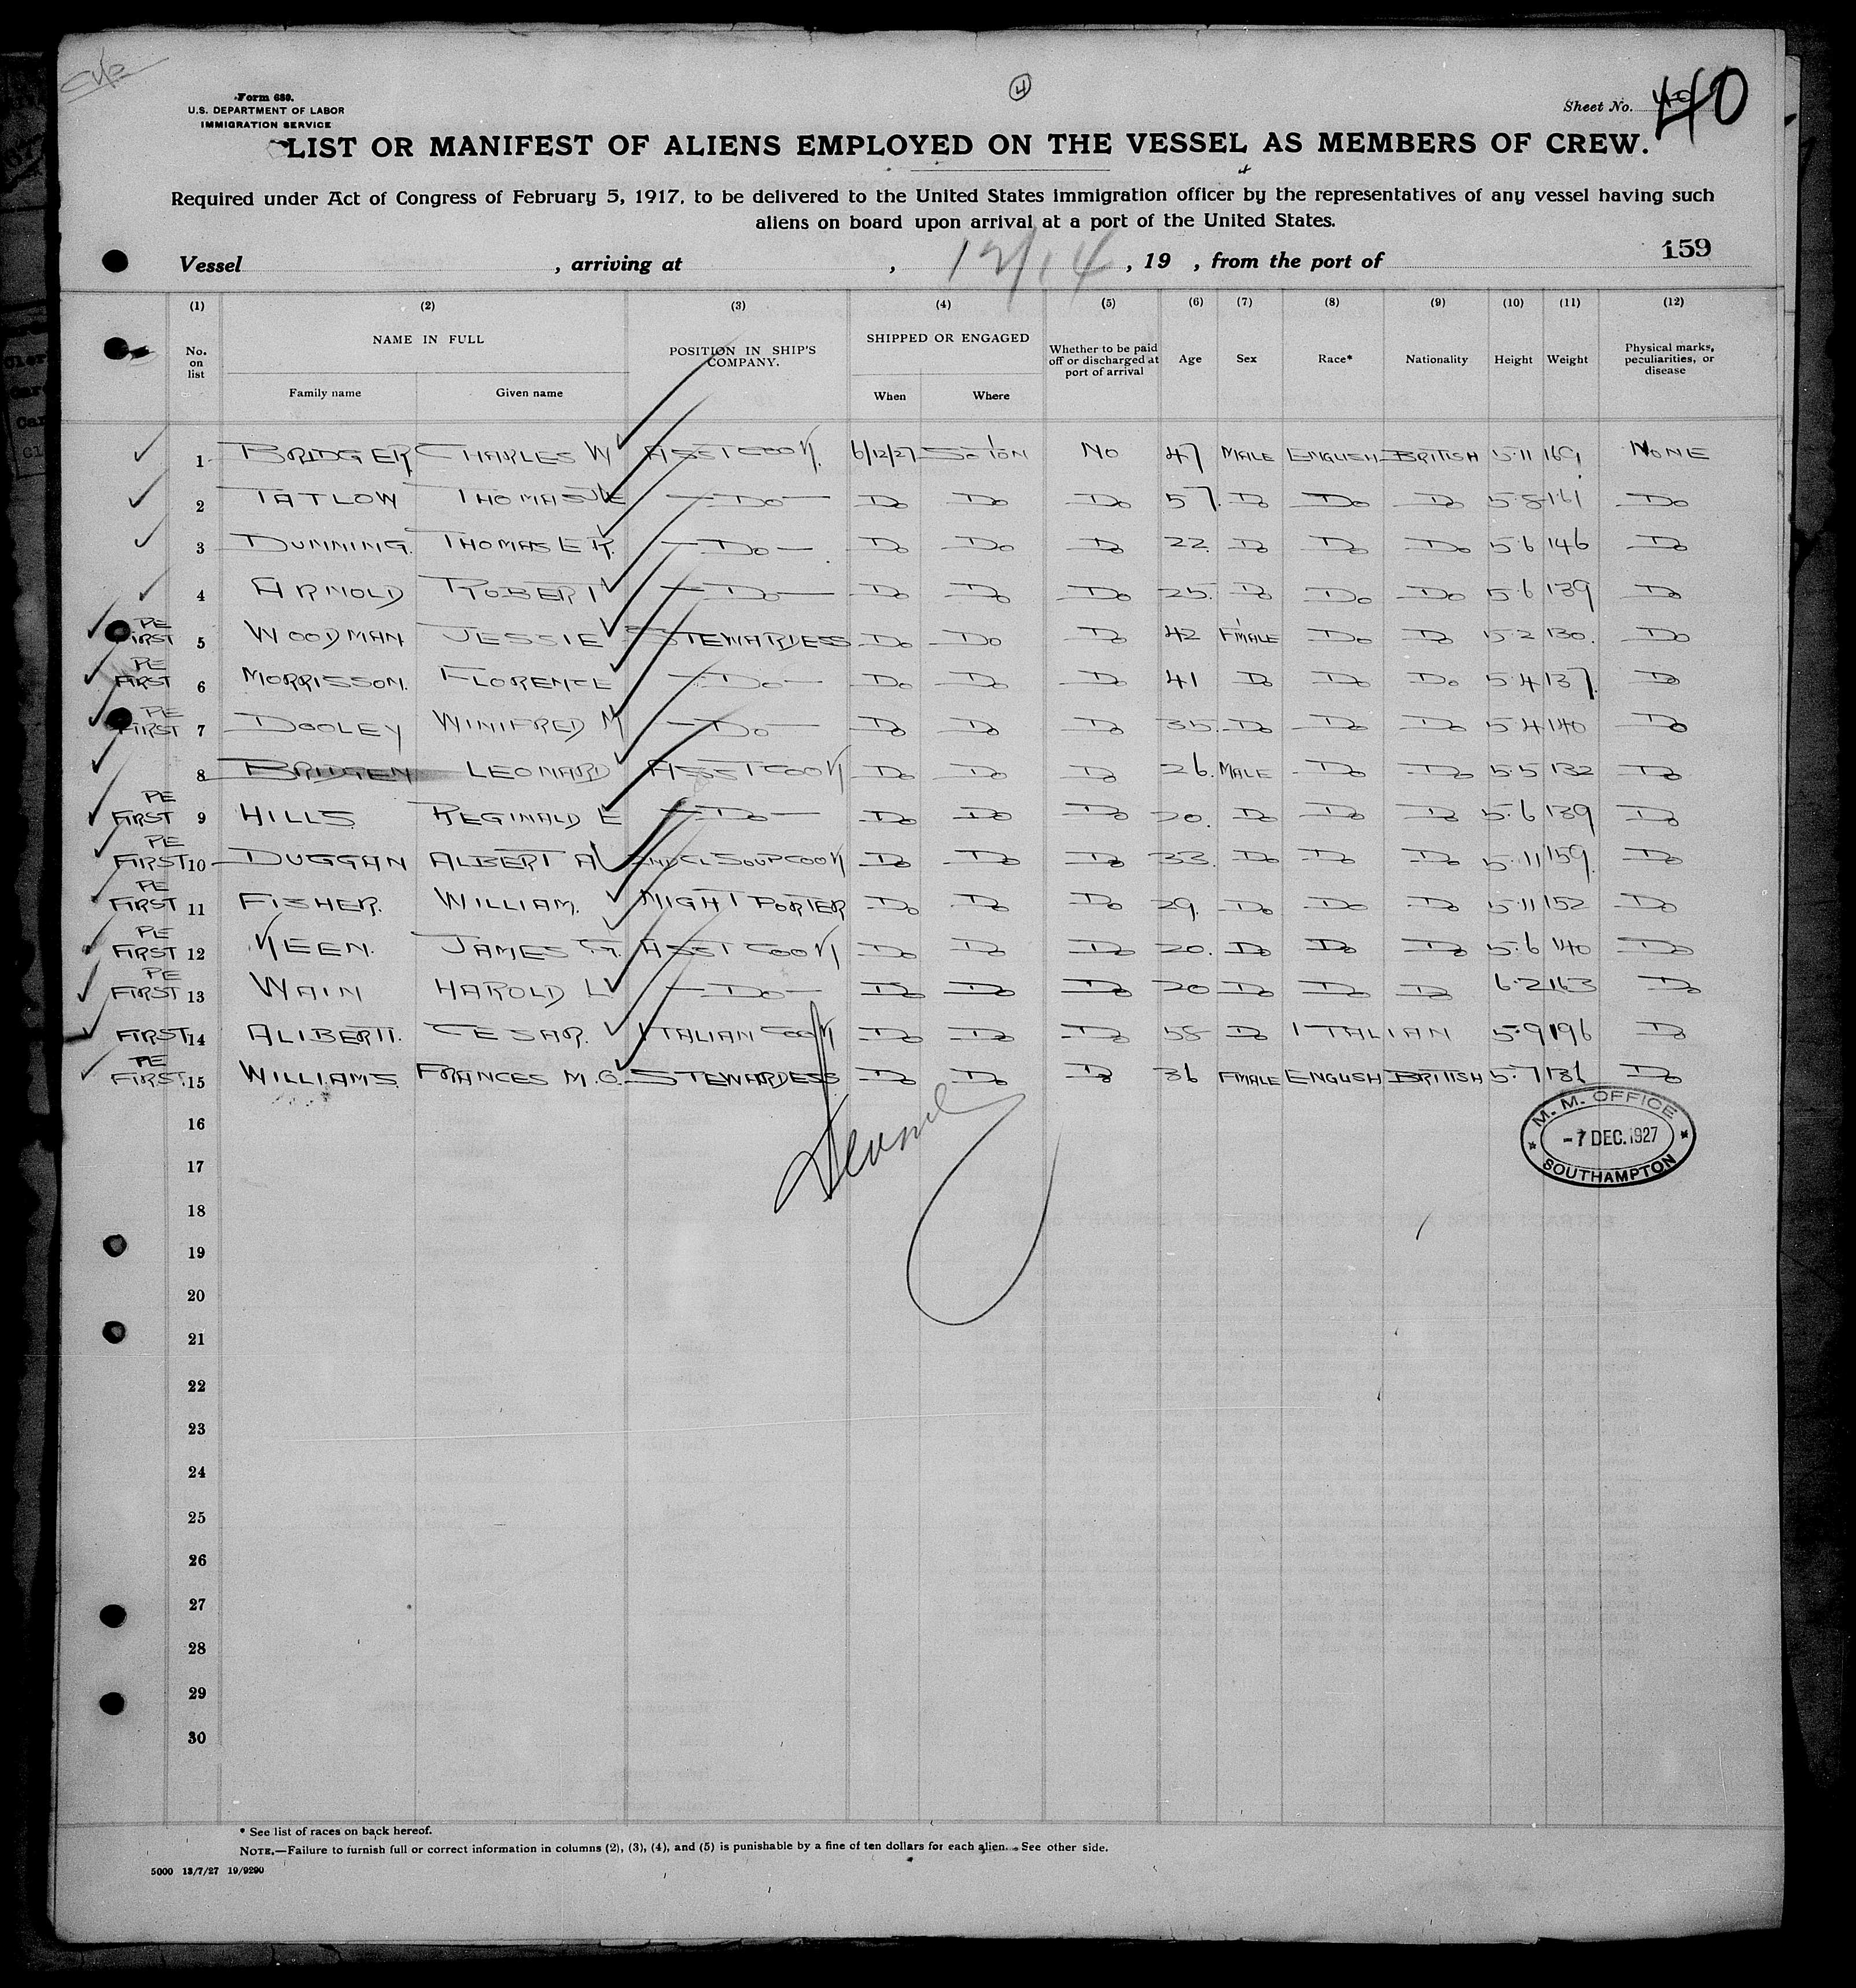 4
Form 680.
U.S. DEPARTMENT OF LABOR
IMMIGRATION SERVICE
Sheet No. 40
LIST OR MANIFEST OF ALIENS EMPLOYED ON THE VESSEL AS MEMBERS OF CREW.
Required under Act of Congress of February 5, 1917, to be delivered to the United States immigration officer by the representatives of any vessel having such
aliens on board upon arrival at a port of the United States.
159
Vessel , arriving at , 12/14 , 19 , from the port of
(1) (2) (3) (4) (5) (6) (7) (8) (9) (10) (11) (12)
No. on list NAME IN FULL Family name Given name POSITION IN SHIP'S COMPANY. SHIPPED OR ENGAGED When Where Whether to be paid off or discharged at port of arrival Age Sex Race* Nationality Height Weight Physical marks, peculiarities, or disease
1 BRIDGER CHARLES W ASST COOK 6/12/27 SO'TON NO 47 MALE ENGLISH BRITISH 5.11 169 NONE
2 TATLOW THOMAS Do Do Do Do 57 Do Do Do 5.8 161 Do
3 DUNNING. THOMAS E R. Do Do Do Do 22 Do Do Do 5.6 146 Do
4 ARNOLD ROBERT Do Do Do Do 25. Do Do Do 5.6 139 Do
PE FIRST 5 WOODMAN JESSIE STEWARDESS Do Do Do 42 FMALE Do Do 5.2 130. Do
PE FIRST 6 MORRISSON. FLORENCE Do Do Do Do 41 Do Do Do 5.4 137. Do
PE FIRST 7 DOOLEY WINIFRED M Do Do Do Do 35. Do Do Do 5.4 140 Do
8 BRIDGEN LEONARD ASST COOK Do Do Do 26. MALE Do Do 5.5 132 Do
PE FIRST 9 HILLS REGINALD E Do Do Do Do 20. Do Do Do 5.6 139 Do
PE FIRST 10 DUGGAN ALBERT A SOUP COOK Do Do Do 33. Do Do Do 5.11 159. Do
PE FIRST 11 FISHER. WILLIAM. NIGHT PORTER Do Do Do 29. Do Do Do 5.11 152 Do
PE FIRST 12 KEEN. JAMES G. ASST COOK Do Do Do 20. Do Do Do 5.6 140 Do
PE FIRST 13 WAIN HAROLD L Do Do Do Do 20 Do Do Do 6.2 163 Do
FIRST 14 ALIBERTI. CESAR. ITALIAN COOK Do Do Do 58 Do ITALIAN 5.9 196 Do
PE FIRST 15 WILLIAMS FRANCES M.G. STEWARDESS Do Do Do 36 FMALE ENGLISH BRITISH 5.7 136 Do
16
M. M. OFFICE
-7 DEC. 1927
SOUTHAMPTON
17
18
19
20
21
22
23
24
25
26
27
28
29
30
* See list of races on back hereof.
NOTE.—Failure to furnish full or correct information in columns (2), (3), (4), and (5) is punishable by a fine of ten dollars for each alien. See other side.
5000 13/7/27 19/9290